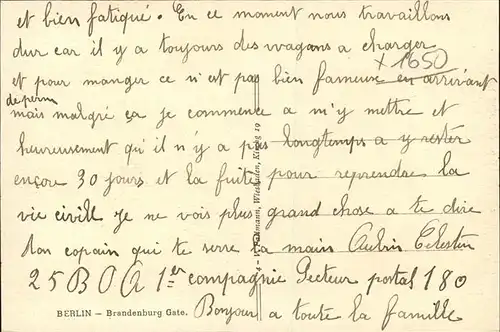 et bien fatigué. En ce moment nous travaillons
dur car il y a toujours des wagons a charger
x 1650
et pour manger ce n'est pas bien fameuse en arrivant
de perm
mais malgré ça je commence a m'y mettre et
heureusement qu'il n'y a pas longtemps a y rester
encore 30 jours et la fuite pour reprendre la
vie civill je ne vois plus grand chose a te dire
ton copain qui te serre la main Aubin Celestin
25 B O A 1er compagnie Secteur postal 180
BERLIN — Brandenburg Gate.
Bonjour a toute la famille
Wiesbaden,